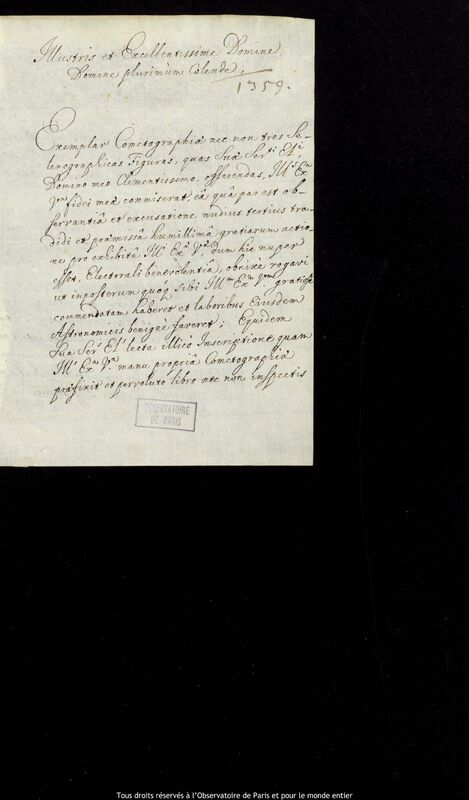 Illustris et Excellentissime Domine,
Domine plurimùm Colende,
1359.
Exemplar Cometographiæ nec non tres Se-
lenographicas Figuras, quas Suæ Ser.ti El.i
Domino meo Clementissimo, offerendas, Ill.a Ex.a
V.ra fidei meæ commiserat, eâ quâ par est ob-
servantiâ et excusatione nudius tertius tra-
didi et præmissâ humillimâ gratiarum actio-
ne pro exhibitâ Ill.i Ex.æ V.æ, dum hic nuper
esset, Electorali benevolentiâ, obnixè rogavi
ut inposterum quoq sibi Ill.am Ex.am V.ram gratiose
commendatam haberet et laboribus Eiusdem
Astronomicis benigne faveret; Equidem
Sua Ser. El. lectâ illicò Inscriptione quam
Ill.a Ex.a V.ra manu propriâ Cometographiæ
præfixit et pervoluto libro nec non inspectis
OBSERVATOIRE
DE PARIS
Tous droits réservés à l'Observatoire de Paris et pour le monde entier